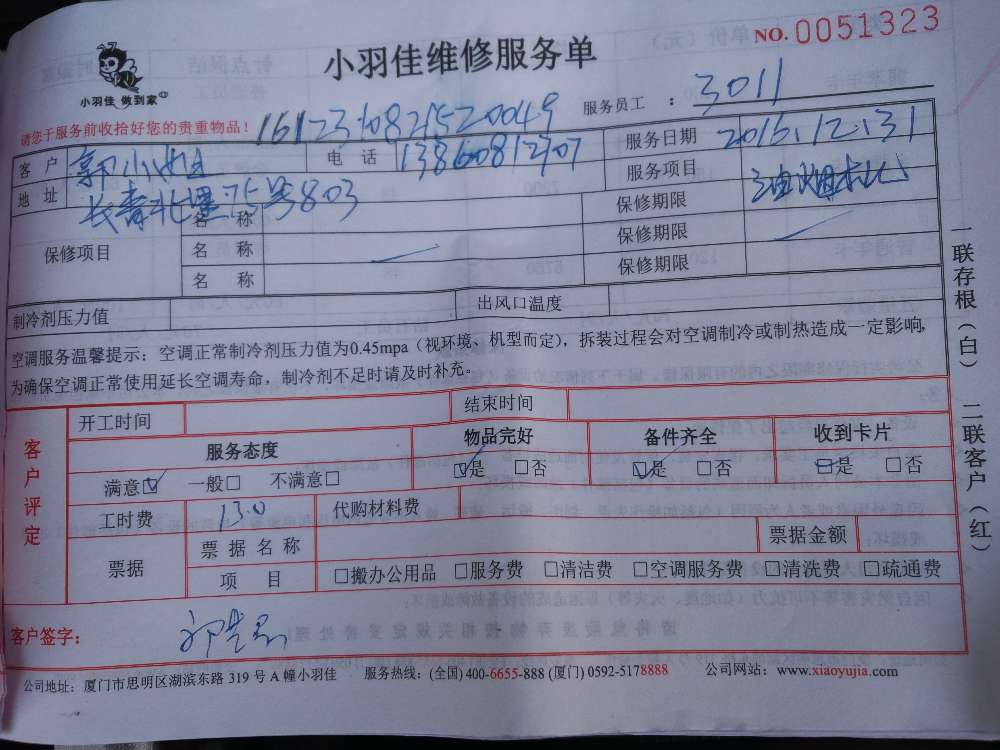 NO. 0051323
小羽佳维修服务单
小羽佳 做到家
服务员工 : 3011
请您于服务前收拾好您的贵重物品!
客户 郭小姐 电话 服务日期 2016.12.31
地址 长青北里75号803 服务项目 油烟机
保修项目 名称 保修期限
名称 保修期限
名称 保修期限
制冷剂压力值 出风口温度
空调服务温馨提示：空调正常制冷剂压力值为0.45mpa（视环境、机型而定），拆装过程会对空调制冷或制热造成一定影响，
为确保空调正常使用延长空调寿命，制冷剂不足时请及时补充。
一联存根（白） 二联客户（红）
客户评定
开工时间 结束时间
服务态度 物品完好 备件齐全 收到卡片
满意☑ 一般□ 不满意□ ☑是 □否 ☑是 □否 ☑是 □否
工时费 130 代购材料费
票据 票据名称 票据金额
项目 □搬办公用品 □服务费 □清洁费 □空调服务费 □清洗费 □疏通费
客户签字：
公司地址：厦门市思明区湖滨东路 319 号 A 幢小羽佳 服务热线：(全国) 400-6655-888 (厦门) 0592-5178888 公司网站：www.xiaoyujia.com